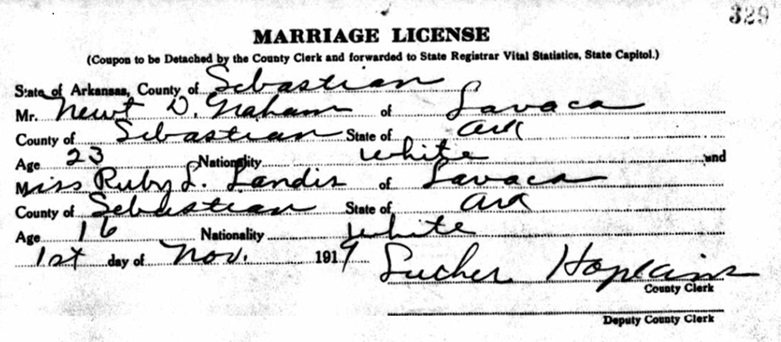 329
MARRIAGE LICENSE
(Coupon to be Detached by the County Clerk and forwarded to State Registrar Vital Statistics, State Capitol.)
State of Arkansas, County of Sebastian
Mr. Newt D. Graham of Lavaca
County of Sebastian State of Ark
Age 23 Nationality white and
Miss Ruby L. Landis of Lavaca
County of Sebastian State of Ark
Age 16 Nationality white
1st day of Nov. 1919
Hopkins
County Clerk
Deputy County Clerk